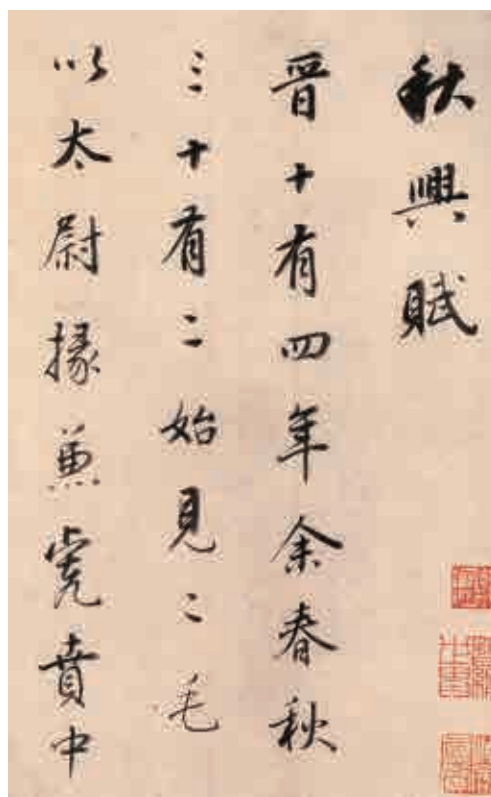 秋興賦
晉十有四年余春秋
三十有二始見二毛
以太尉掾兼虎賁中